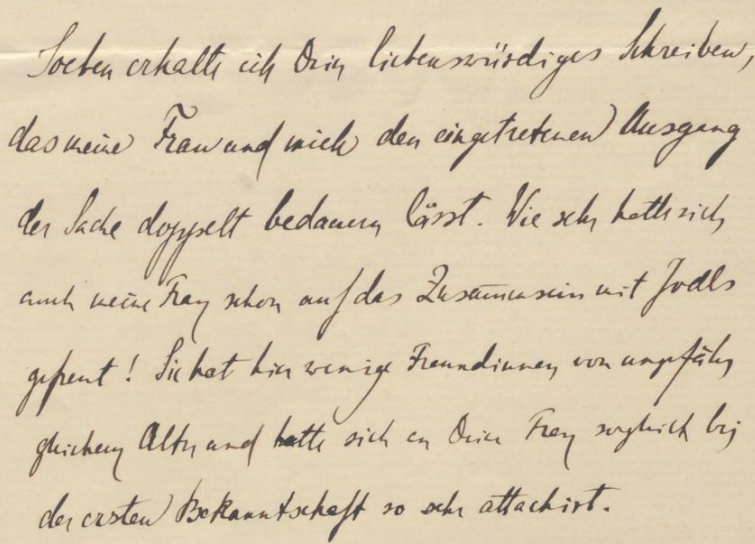 Soeben erhalte ich Dein liebenswürdiges Schreiben,
das meine Frau und mich den eingetretenen Ausgang
der Sache doppelt bedauern lässt. Wie sehr hatte sich
auch meine Frau schon auf das Zusammensein mit Jodls
gefreut! Sie hat hier wenige Freundinnen von ungefähr
gleichem Alter und hatte sich an Deine Frau sogleich bei
der ersten Bekanntschaft so sehr attachirt.